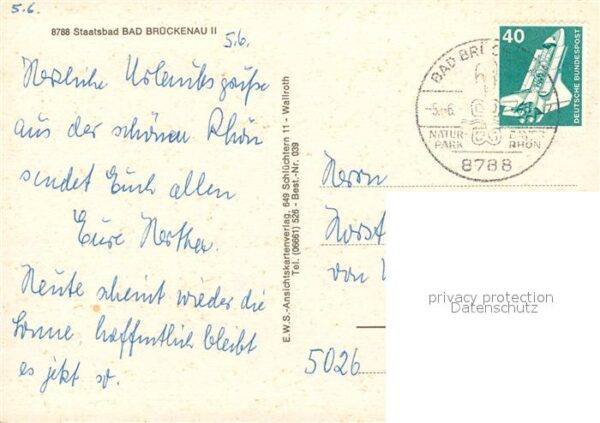 5.6.
8788 Staatsbad BAD BRÜCKENAU II
5.6.
Herzliche Urlaubsgrüße
aus der schönen Rhön
sendet Euch allen
Eure Hertha.
Heute scheint wieder die
Sonne, hoffentlich bleibt
es jetzt so.
E.W.S.-Ansichtskartenverlag, 649 Schlüchtern 11 - Wallroth
Tel. (06661) 526 - Best.-Nr. 039
40
DEUTSCHE BUNDESPOST
BAD BRÜC
-5.-6.
NATUR-
PARK
RHÖN
8788
Herrn
Horst
von
5026
privacy protection
Datenschutz